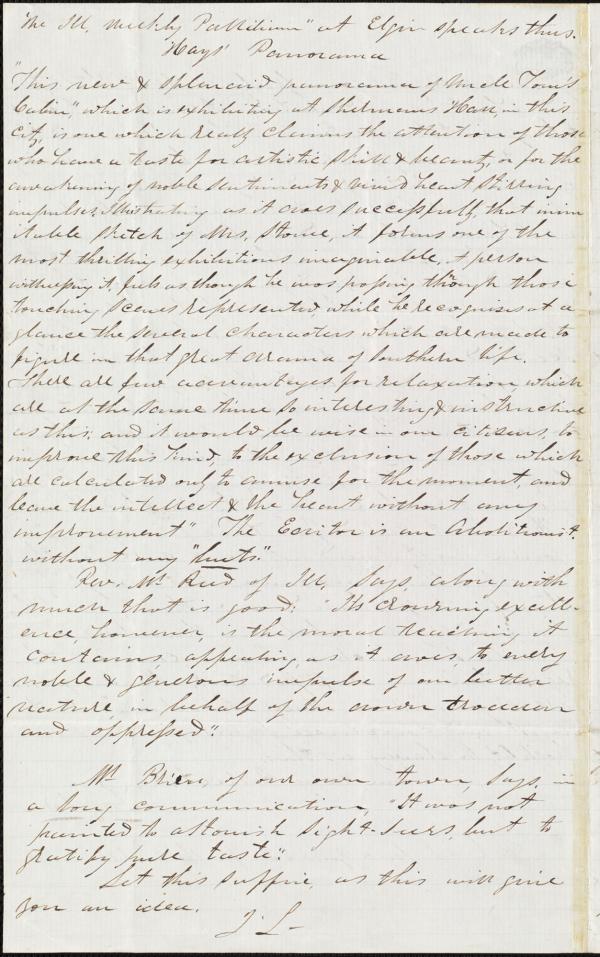 The Ill, Weekly Palladium" at Elgin speaks thus.
Hays' Panorama
"This new & splendid panorama of Uncle Tom's
Cabin", which is exhibiting at Shermans Hall, in this
city, is one which really claims the attention of those
who have a taste for artistic skill & beauty, or for the
awakening of noble sentiments & vivid heart stirring
impulses, Illustrating as it does successfully, that inim
itable sketch of Mrs. Stowe, it forms one of the
most thrilling exhibitions imaginable. A person
witnessing it, feels as though he was passing through those
touching scenes represented, while he recognises at a
glance the several characters which are made to
figure in that great drama of Southern life.
There are few advantages for relaxation, which
are at the same time so interesting & instructive
as this; and it would be wise in our citizens, to
improve this kind, to the exclusion of those which
are calculated only to amuse for the moment, and
leave the intellect & the heart without any
improvement" The Editor is an Abolitionist
without any "buts."
Rev. Mr Reed of Ill, says, along with
much that is good: "Its crowning excell-
ence, however, is the moral teaching it
contains, appealing, as it does, to every
noble & generous impulse of our better
nature, in behalf of the down trodden
and oppressed".
Mr of our own town, says, in
a long communication, "It was not
painted to astonish sight-seers, but to
gratify pure taste".
Let this suffice, as this will give
you an idea.
J. L-